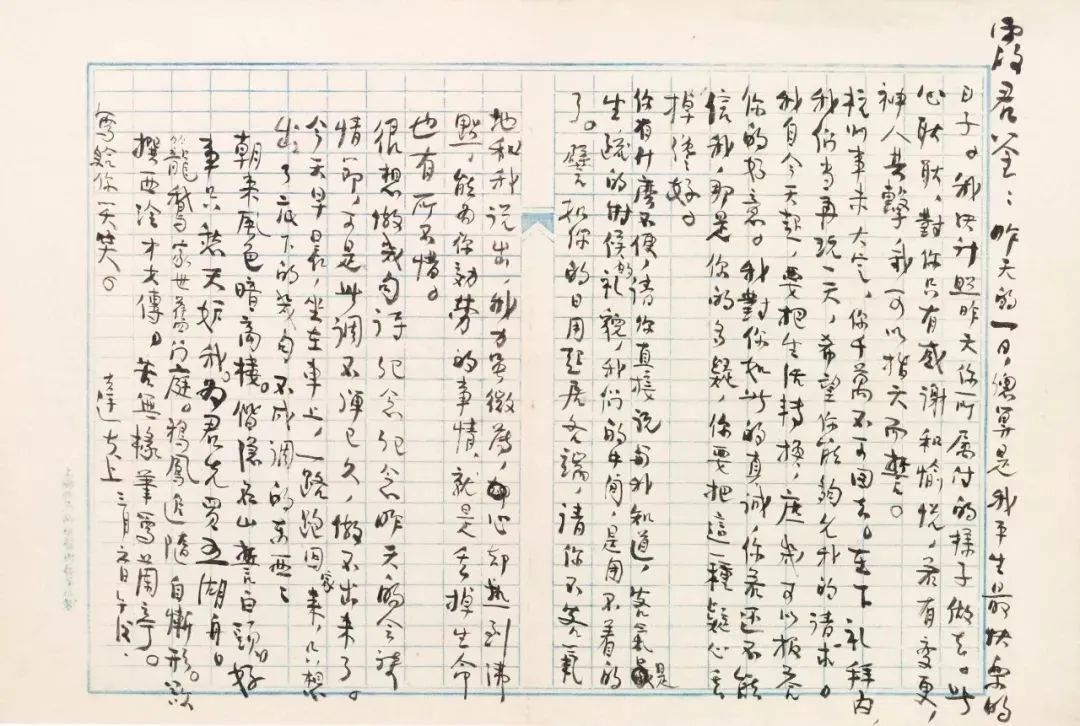 霞君鑒：昨天的一日，總算是我平生最快樂的
日子。我決計照昨天你所属付的樣子做去。此
心耿耿，對你只有感谢和愉悦，若有变更，
神人共擊，我可以指天而誓。
杭州事未大定，你千萬不可回去。在下礼拜内
我们当再玩一天，希望你能夠允我的请求。
我自今天起，要把生活转换，庶幾可以报答
你的好意。我對你如此的真誠，你若还不能
信我，那是你的多疑，你要把這一種疑心去
掉傯好。
你有什麽不便，请你直接说与我知道，客氣是
生疏的时候的礼貌，我们的中间，是用不着的
了。譬如你的日用起居各端，请你不客氣
地和我说出，我力虽微薄，心却熱到沸
點，能为你効劳的事情，就是丢掉生命
也有所不惜。
很想做幾句诗纪念纪念昨天的会談
情節，可是此调不弹已久，做不出来了。
今天早晨，坐在車上，一路跑回家来，只想
出了底下的幾句不成调的东西：
朝来風色暗高樓。偕隐名山誓白頭。好
事只愁天妒我。为君先買五湖舟。
籠鵝家世舊门庭。鸦鳳追隨自慚形。欲
撰西泠才女傳。苦無椽筆寫蘭亭。
寫给你一笑。
達夫上 三月七日午後